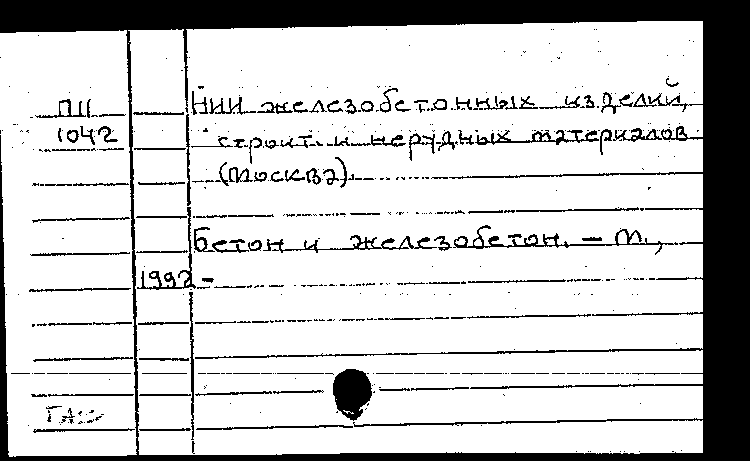 П11 НИИ железобетонных изделий,
1042 строит. и нерудных материалов
(Москва).
Бетон и железобетон. – М.,
1992 –